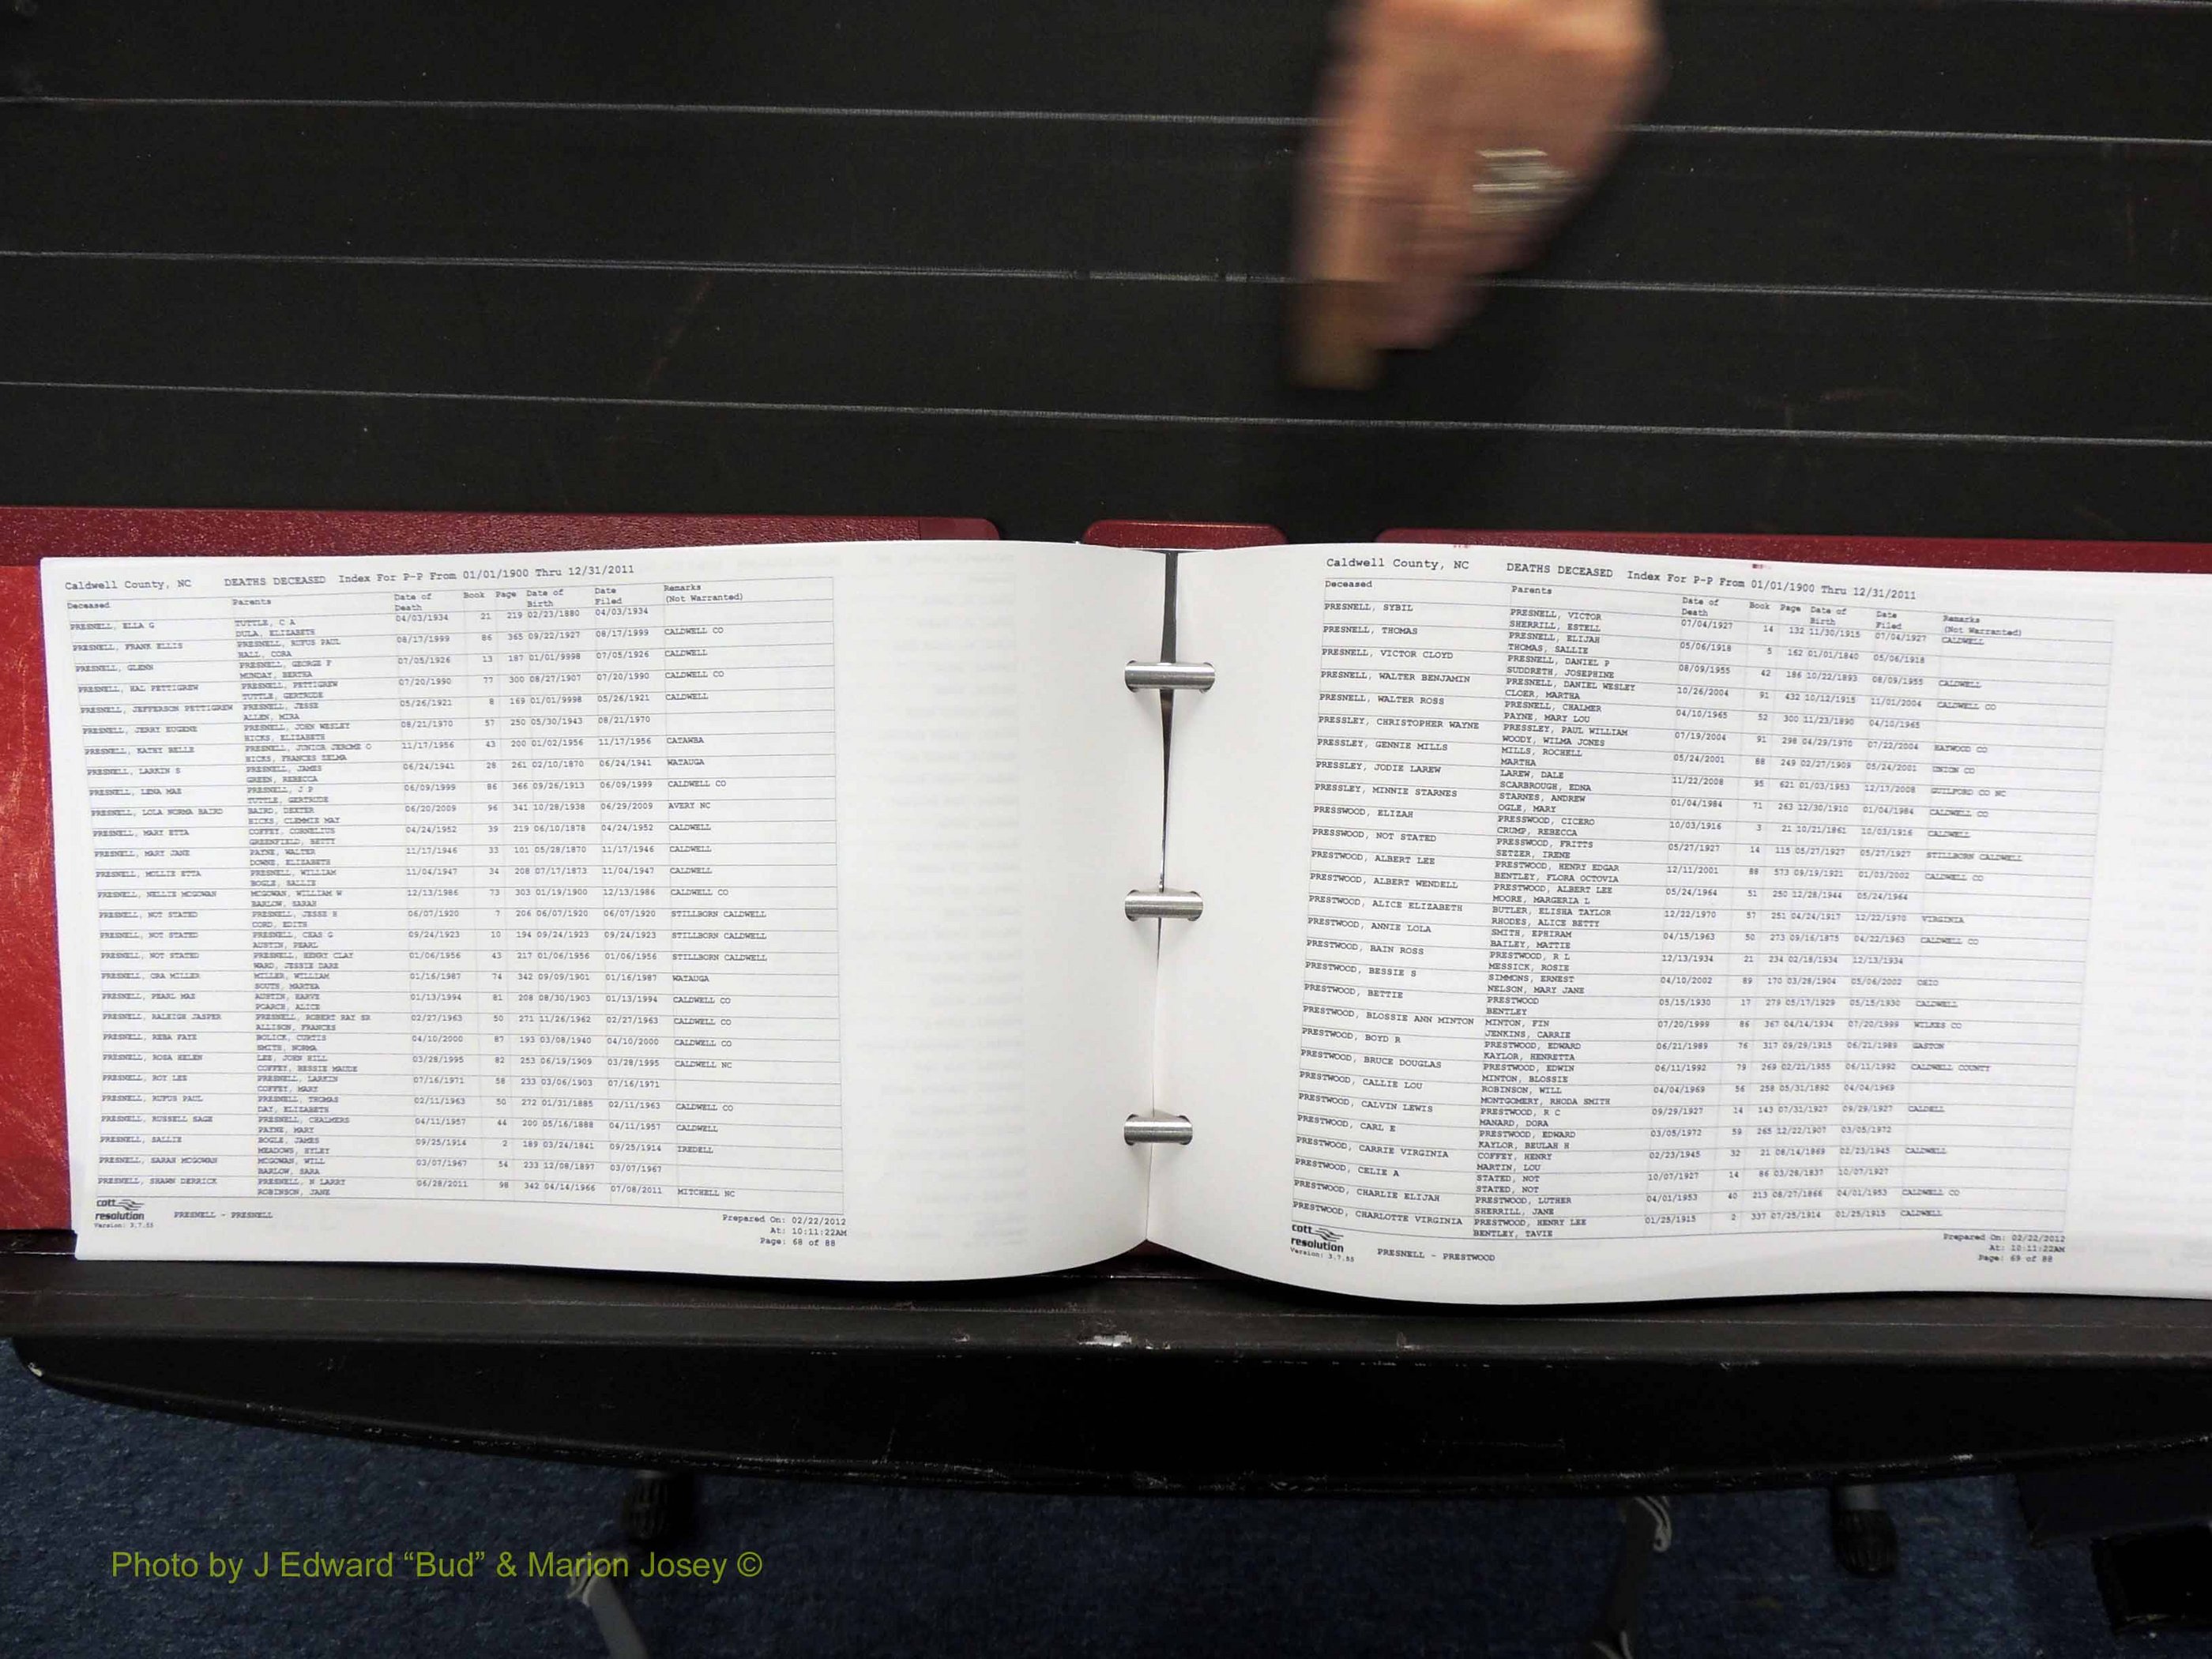 Caldwell County, NC DEATHS DECEASED Index For P-P From 01/01/1900 Thru 12/31/2011
Deceased Parents Date of Death Book Page Date of Birth Date Filed Remarks (Not Warranted)
PRESNELL, ELLA G TUTTLE, C A 04/03/1934 21 219 02/23/1880 04/03/1934
DULA, ELIZABETH
PRESNELL, FRANK ELLIS PRESNELL, RUFUS PAUL 08/17/1999 86 365 09/22/1927 08/17/1999 CALDWELL CO
HALL, CORA
PRESNELL, GLENN PRESNELL, GEORGE P 07/05/1926 13 187 01/01/9998 07/05/1926 CALDWELL
MUNDAY, BERTHA
PRESNELL, HAL PETTIGREW PRESNELL, PETTIGREW 07/20/1990 77 300 08/27/1907 07/20/1990 CALDWELL CO
TUTTLE, GERTRUDE
PRESNELL, JEFFERSON PETTIGREW PRESNELL, JESSE 05/26/1921 8 169 01/01/9998 05/26/1921 CALDWELL
ALLEN, MIRA
PRESNELL, JERRY EUGENE PRESNELL, JOHN WESLEY 08/21/1970 57 250 05/30/1943 08/21/1970
HICKS, ELIZABETH
PRESNELL, KATHY BELLE PRESNELL, JUNIOR JEROME C 11/17/1956 43 200 01/02/1956 11/17/1956 CATAWBA
HICKS, FRANCES ZELMA
PRESNELL, LARKIN S PRESNELL, JAMES 06/24/1941 28 261 02/10/1870 06/24/1941 WATAUGA
GREEN, REBECCA
PRESNELL, LENA MAE PRESNELL, J P 06/09/1999 86 366 09/26/1913 06/09/1999 CALDWELL CO
TUTTLE, GERTRUDE
PRESNELL, LOLA NORMA BAIRD BAIRD, DEXTER 06/20/2009 96 341 10/28/1938 06/29/2009 AVERY NC
HICKS, CLEMMIE MAY
PRESNELL, MARY ETTA COFFEY, CORNELIUS 04/24/1952 39 219 06/10/1878 04/24/1952 CALDWELL
GREENFIELD, BETTY
PRESNELL, MARY JANE PAYNE, WALTER 11/17/1946 33 101 05/28/1870 11/17/1946 CALDWELL
DOWNS, ELIZABETH
PRESNELL, MOLLIE ETTA PRESNELL, WILLIAM 11/04/1947 34 208 07/17/1873 11/04/1947 CALDWELL
BOGLE, SALLIE
PRESNELL, NELLIE MCGOWAN MCGOWAN, WILLIAM W 12/13/1986 73 303 01/19/1900 12/13/1986 CALDWELL CO
BARLOW, SARAH
PRESNELL, NOT STATED PRESNELL, JESSE H 06/07/1920 7 206 06/07/1920 06/07/1920 STILLBORN CALDWELL
CORD, EDITH
PRESNELL, NOT STATED PRESNELL, CHAS G 09/24/1923 10 194 09/24/1923 09/24/1923 STILLBORN CALDWELL
AUSTIN, PEARL
PRESNELL, NOT STATED PRESNELL, HENRY CLAY 01/06/1956 43 217 01/06/1956 01/06/1956 STILLBORN CALDWELL
WARD, JESSIE DARE
PRESNELL, ORA MILLER MILLER, WILLIAM 01/16/1987 74 342 09/09/1901 01/16/1987 WATAUGA
SOUTH, MARTHA
PRESNELL, PEARL MAE AUSTIN, HARVE 01/13/1994 81 208 08/30/1903 01/13/1994 CALDWELL CO
PEARCE, ALICE
PRESNELL, RALEIGH JASPER PRESNELL, ROBERT RAY SR 02/27/1963 50 271 11/26/1962 02/27/1963 CALDWELL CO
ALLISON, FRANCES
PRESNELL, REBA FAYE BOLICK, CURTIS 04/10/2000 87 193 03/08/1940 04/10/2000 CALDWELL CO
SMITH, NORMA
PRESNELL, ROSA HELEN LEE, JOHN HILL 03/28/1995 82 253 06/19/1909 03/28/1995 CALDWELL NC
COFFEY, BESSIE MAUDE
PRESNELL, ROY LEE PRESNELL, LARKIN 07/16/1971 58 233 03/06/1903 07/16/1971
COFFEY, MARY
PRESNELL, RUFUS PAUL PRESNELL, THOMAS 02/11/1963 50 272 01/31/1885 02/11/1963 CALDWELL CO
DAY, ELIZABETH
PRESNELL, RUSSELL SAGE PRESNELL, CHALMERS 04/11/1957 44 200 05/16/1888 04/11/1957 CALDWELL
PAYNE, MARY
PRESNELL, SALLIE BOGLE, JAMES 09/25/1914 2 189 03/24/1841 09/25/1914 IREDELL
MEADOWS, HYLEY
PRESNELL, SARAH MCGOWAN MCGOWAN, WILL 03/07/1967 54 233 12/08/1897 03/07/1967
BARLOW, SARA
PRESNELL, SHAWN DERRICK PRESNELL, N LARRY 06/28/2011 98 342 04/14/1966 07/08/2011 MITCHELL NC
ROBINSON, JANE
cott
resolution
Version: 3.7.55
PRESNELL - PRESNELL
Prepared On: 02/22/2012
At: 10:11:22AM
Page: 68 of 88
Caldwell County, NC DEATHS DECEASED Index For P-P From 01/01/1900 Thru 12/31/2011
Deceased Parents Date of Death Book Page Date of Birth Date Filed Remarks (Not Warranted)
PRESNELL, SYBIL PRESNELL, VICTOR 07/04/1927 14 132 11/30/1915 07/04/1927 CALDWELL
SHERRILL, ESTELL
PRESNELL, THOMAS PRESNELL, ELIJAH 05/06/1918 5 162 01/01/1840 05/06/1918
THOMAS, SALLIE
PRESNELL, VICTOR CLOYD PRESNELL, DANIEL P 08/09/1955 42 186 10/22/1893 08/09/1955 CALDWELL
SUDDRETH, JOSEPHINE
PRESNELL, WALTER BENJAMIN PRESNELL, DANIEL WESLEY 10/26/2004 91 432 10/12/1915 11/01/2004 CALDWELL CO
CLOER, MARTHA
PRESNELL, WALTER ROSS PRESNELL, CHALMER 04/10/1965 52 300 11/23/1890 04/10/1965
PAYNE, MARY LOU
PRESSLEY, CHRISTOPHER WAYNE PRESSLEY, PAUL WILLIAM 07/19/2004 91 298 04/29/1970 07/22/2004 HAYWOOD CO
WOODY, WILMA JONES
PRESSLEY, GENNIE MILLS MILLS, ROCHELL 05/24/2001 88 249 02/27/1909 05/24/2001 UNION CO
MARTHA
PRESSLEY, JODIE LAREW LAREW, DALE 11/22/2008 95 621 01/03/1953 12/17/2008 GUILFORD CO NC
SCARBROUGH, EDNA
PRESSLEY, MINNIE STARNES STARNES, ANDREW 01/04/1984 71 263 12/30/1910 01/04/1984 CALDWELL CO
OGLE, MARY
PRESSWOOD, ELIZAH PRESSWOOD, CICERO 10/03/1916 3 21 10/21/1861 10/03/1916 CALDWELL
CRUMP, REBECCA
PRESSWOOD, NOT STATED PRESSWOOD, FRITTS 05/27/1927 14 115 05/27/1927 05/27/1927 STILLBORN CALDWELL
SETZER, IRENE
PRESTWOOD, ALBERT LEE PRESTWOOD, HENRY EDGAR 12/11/2001 88 573 09/19/1921 01/03/2002 CALDWELL CO
BENTLEY, FLORA OCTOVIA
PRESTWOOD, ALBERT WENDELL PRESTWOOD, ALBERT LEE 05/24/1964 51 250 12/28/1944 05/24/1964
MOORE, MARGERIA L
PRESTWOOD, ALICE ELIZABETH BUTLER, ELISHA TAYLOR 12/22/1970 57 251 04/24/1917 12/22/1970 VIRGINIA
RHODES, ALICE BETTY
PRESTWOOD, ANNIE LOLA SMITH, EPHIRAM 04/15/1963 50 273 09/16/1875 04/22/1963 CALDWELL CO
BAILEY, MATTIE
PRESTWOOD, BAIN ROSS PRESTWOOD, R L 12/13/1934 21 234 02/18/1934 12/13/1934
MESSICK, ROSIE
PRESTWOOD, BESSIE S SIMMONS, ERNEST 04/10/2002 89 170 03/28/1904 05/06/2002 OHIO
NELSON, MARY JANE
PRESTWOOD, BETTIE PRESTWOOD 05/15/1930 17 279 05/17/1929 05/15/1930 CALDWELL
BENTLEY
PRESTWOOD, BLOSSIE ANN MINTON MINTON, FIN 07/20/1999 86 367 04/14/1934 07/20/1999 WILKES CO
JENKINS, CARRIE
PRESTWOOD, BOYD R PRESTWOOD, EDWARD 06/21/1989 76 317 09/29/1915 06/21/1989 GASTON
KAYLOR, HENRETTA
PRESTWOOD, BRUCE DOUGLAS PRESTWOOD, EDWIN 06/11/1992 79 269 02/21/1955 06/11/1992 CALDWELL COUNTY
MINTON, BLOSSIE
PRESTWOOD, CALLIE LOU ROBINSON, WILL 04/04/1969 56 258 05/31/1892 04/04/1969
MONTGOMERY, RHODA SMITH
PRESTWOOD, CALVIN LEWIS PRESTWOOD, R C 09/29/1927 14 143 07/31/1927 09/29/1927 CALDELL
MANARD, DORA
PRESTWOOD, CARL E PRESTWOOD, EDWARD 03/05/1972 59 265 12/22/1907 03/05/1972
KAYLOR, BEULAH H
PRESTWOOD, CARRIE VIRGINIA COFFEY, HENRY 02/23/1945 32 21 08/14/1869 02/23/1945 CALDWELL
MARTIN, LOU
PRESTWOOD, CELIE A STATED, NOT 10/07/1927 14 86 03/26/1837 10/07/1927
STATED, NOT
PRESTWOOD, CHARLIE ELIJAH PRESTWOOD, LUTHER 04/01/1953 40 213 08/27/1866 04/01/1953 CALDWELL CO
SHERRILL, JANE
PRESTWOOD, CHARLOTTE VIRGINIA PRESTWOOD, HENRY LEE 01/25/1915 2 337 07/25/1914 01/25/1915 CALDWELL
BENTLEY, TAVIE
cott
resolution
Version: 3.7.55
PRESNELL - PRESTWOOD
Prepared On: 02/22/2012
At: 10:11:22AM
Page: 69 of 88
Photo by J Edward “Bud” & Marion Josey ©